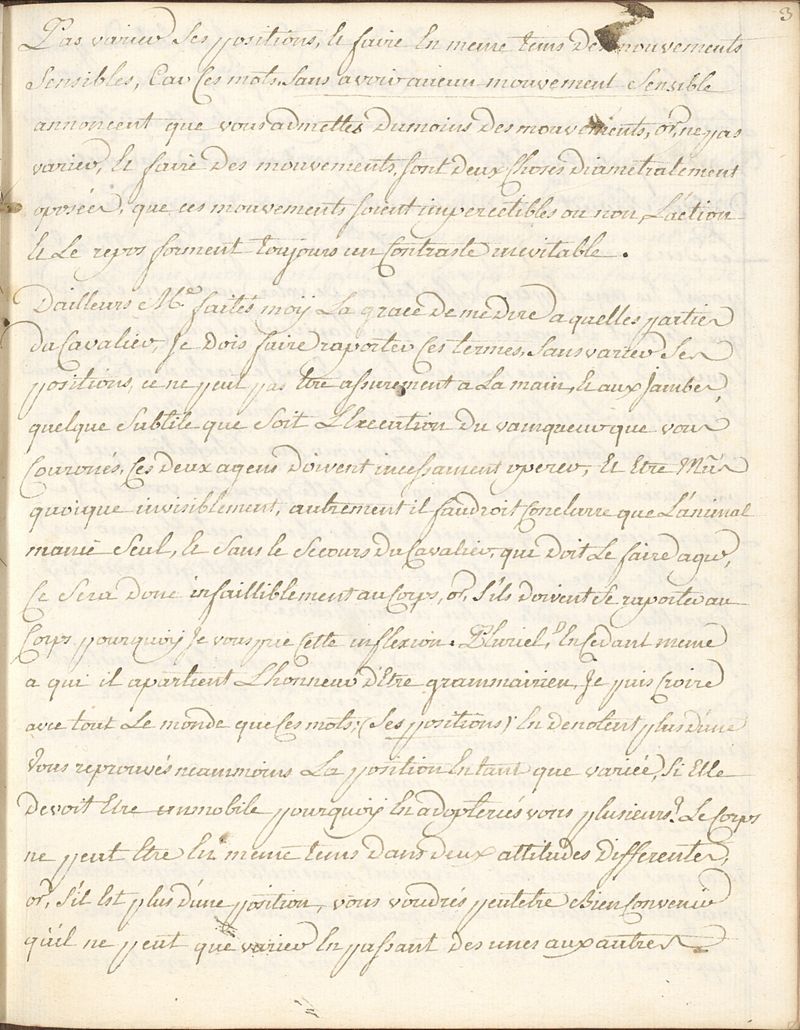 3
Pas varier ses positions, et faire en meme tems des mouvements
sensibles, Car ces mots, sans avoir aucun mouvement sensible
annoncent que vous admettes dumoins des mouvements, or, ne pas
varier, et faire des mouvements, sont deux choses diametralement
oposées, que ces mouvements soient impercetibles ou non, L'action
et Le repos forment toujours un Contraste inevitable.
D'ailleurs Mr. faites moÿ La grace de me dire a quelles parties
du Cavalier, Je dois faire raporter ces termes, sans varier ses
positions, ce ne peut pas etre assurement a La main, et aux Jambes,
quelque subtile que soit L'Execution du vainqueur que vous
Couronés, Ces deux agens doivent incessament operer, Et Etre Mûs
quoique invisiblement, autrement il faudroit Conclurre que L'animal
manie seul, et sans le secours du Cavalier, qui doit Le faire agir,
Ce sera donc infailliblement au Corps, or, s'ils doivent se raporter au
Corps pourquoÿ Je vous prie Cette inflexion. Pluriel, En Cedant meme
a qui il apartient L'honneur d'Etre grammairien, Je puis Croire
avec tout Le monde que Ces mots; (ses positions) En denotent plus d'une
Vous reprouvés neammoins La position En tant que variée, si Elle
devoit Etre immobile pourquoÿ En adopteriés vous plusieurs? Le Corps
ne peut Etre En meme tems dans deux attitudes differentes,
or, s'il Est plus d'une position, vous voudrés peutetre bien Convenir
qu'il ne peut que varier En passant des unes aux autres